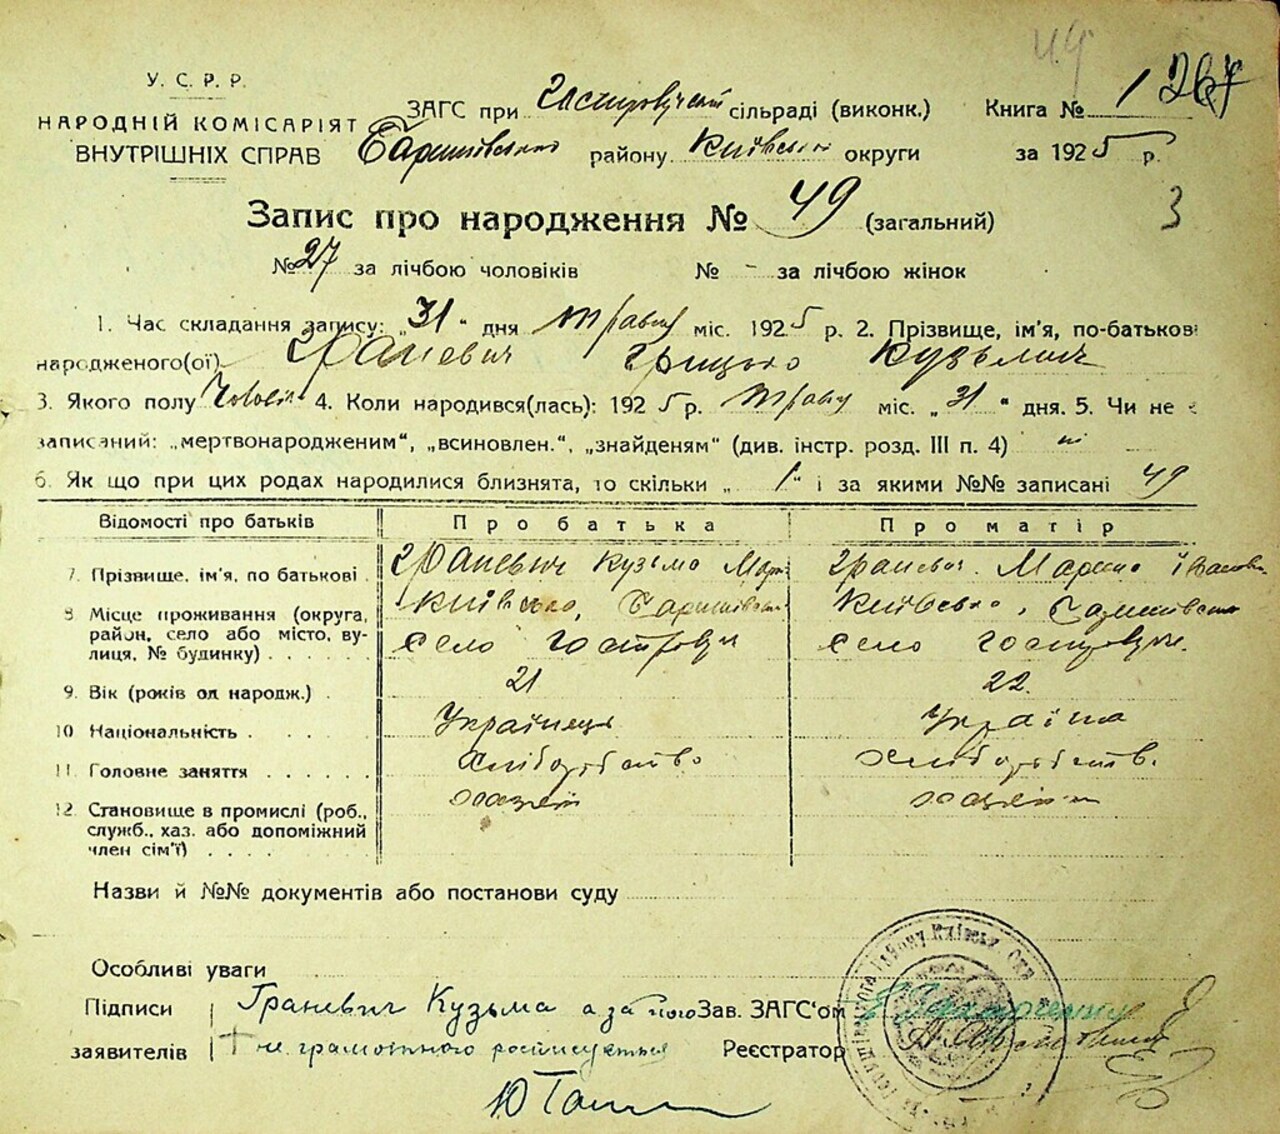 У. С. Р. Р.
НАРОДНІЙ КОМІСАРІЯТ
ВНУТРІШНІХ СПРАВ
ЗАГС при сільраді (виконк.)
Баришівського району Київської округи
Книга № 1 267
за 1925 р.
3
Запис про народження № 49 (загальний)
№ 27 за лічбою чоловіків № - за лічбою жінок
1. Час складання запису: „31“ дня травня міс. 1925 р. 2. Прізвище, ім'я, по-батькові
народженого(ої) Граневич Грицько Кузьмич
3. Якого полу 4. Коли народився(лась): 1925 р. травня міс. „31“ дня. 5. Чи не є
записаний: „мертвонародженим“, „всиновлен.“, „знайденям“ (див. інстр. розд. III п. 4) ні
6. Як що при цих родах народилися близнята, то скільки „1“ і за якими №№ записані 49
Відомості про батьків Про батька Про матір
7. Прізвище, ім'я, по батькові Граневич Кузьма Граневич Марина
8 Місце проживання (округа, район, село або місто, вулиця, № будинку) Київсько, село Київсько, село
9. Вік (років од народж.) 21 22.
10 Національність Українець Україна
11. Головне заняття Хліборобство Хліборобств.
12. Становище в промислі (роб., служб., хаз. або допоміжний член сім'ї) хазяїн
Назви й №№ документів або постанови суду
Особливі уваги
Підписи заявителів Граневич Кузьма а за його
+ не грамотного росписується
Зав. ЗАГС'ом
Реєстратор